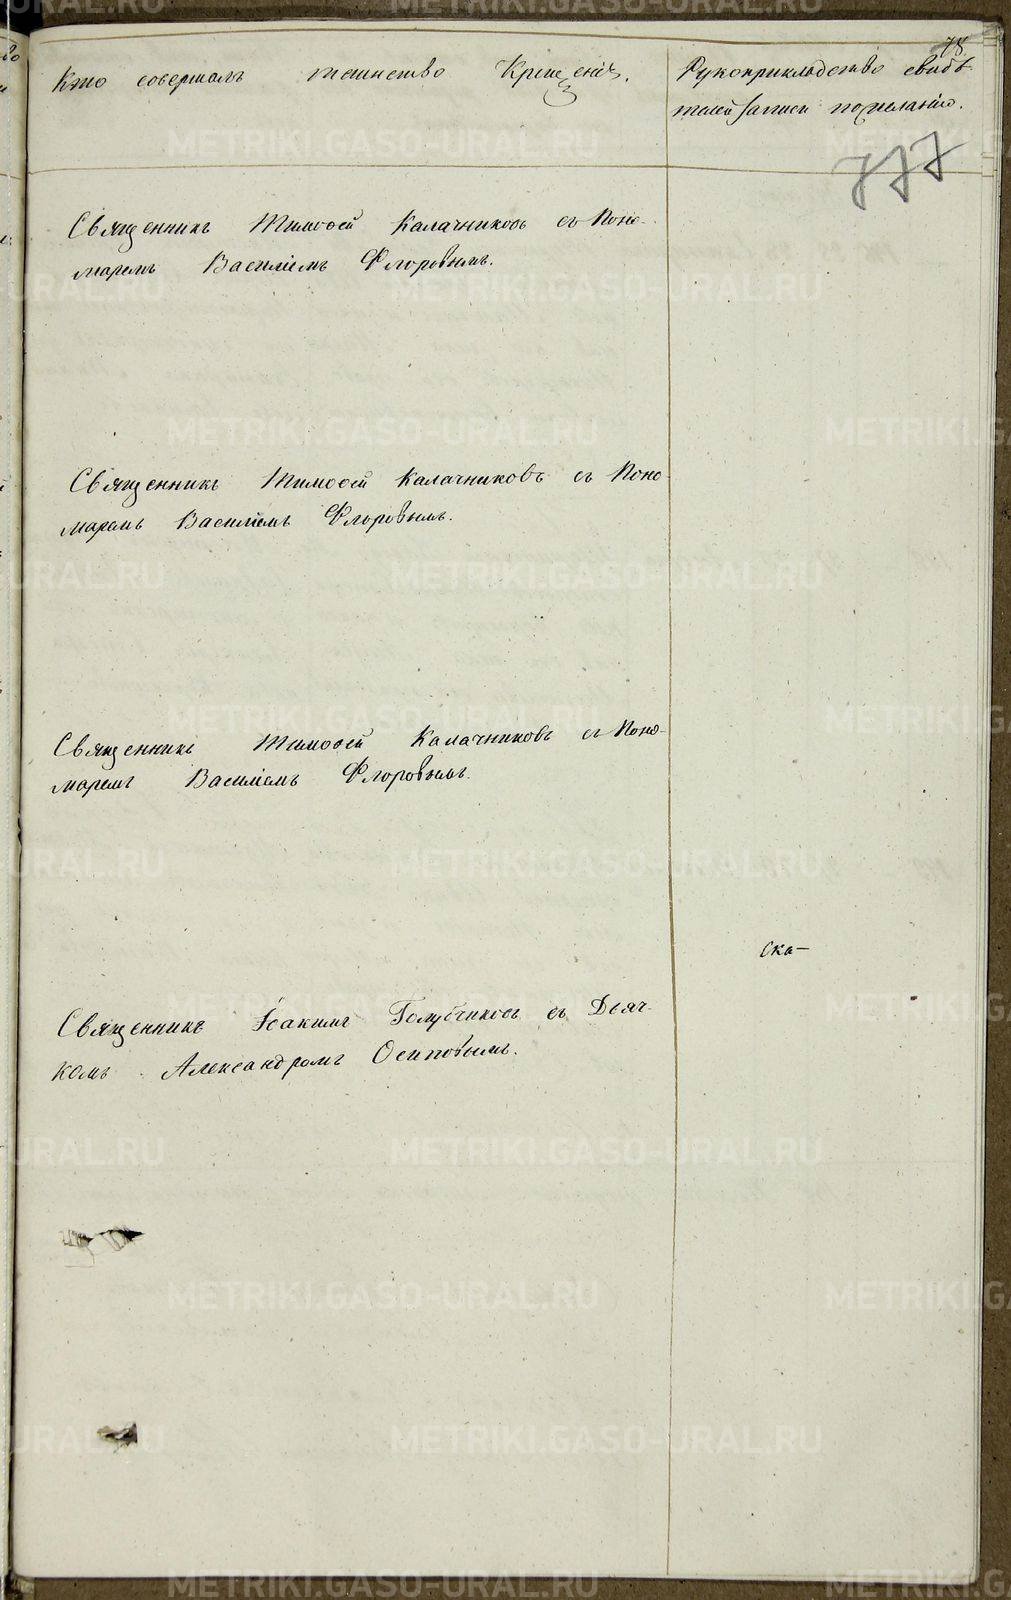 78
Кто совершалъ таинство Крещенія.
Рукоприкладство свидѣ-
телей записи по желанію.
777
Священникъ Тимоѳей Калачниковъ съ Поно-
маремъ Василіемъ Флоровымъ.
Священникъ Тимоѳей Калачниковъ съ Поно
маремъ Василіемъ Флоровымъ.
Священникъ Тимоѳей Калачниковъ съ Поно-
маремъ Василіемъ Флоровымъ.
Ска-
Священникъ Іоакимъ Голубчиковъ съ Дьяч-
комъ Александромъ Осиповымъ.
METRIKI.GASO-URAL.RU